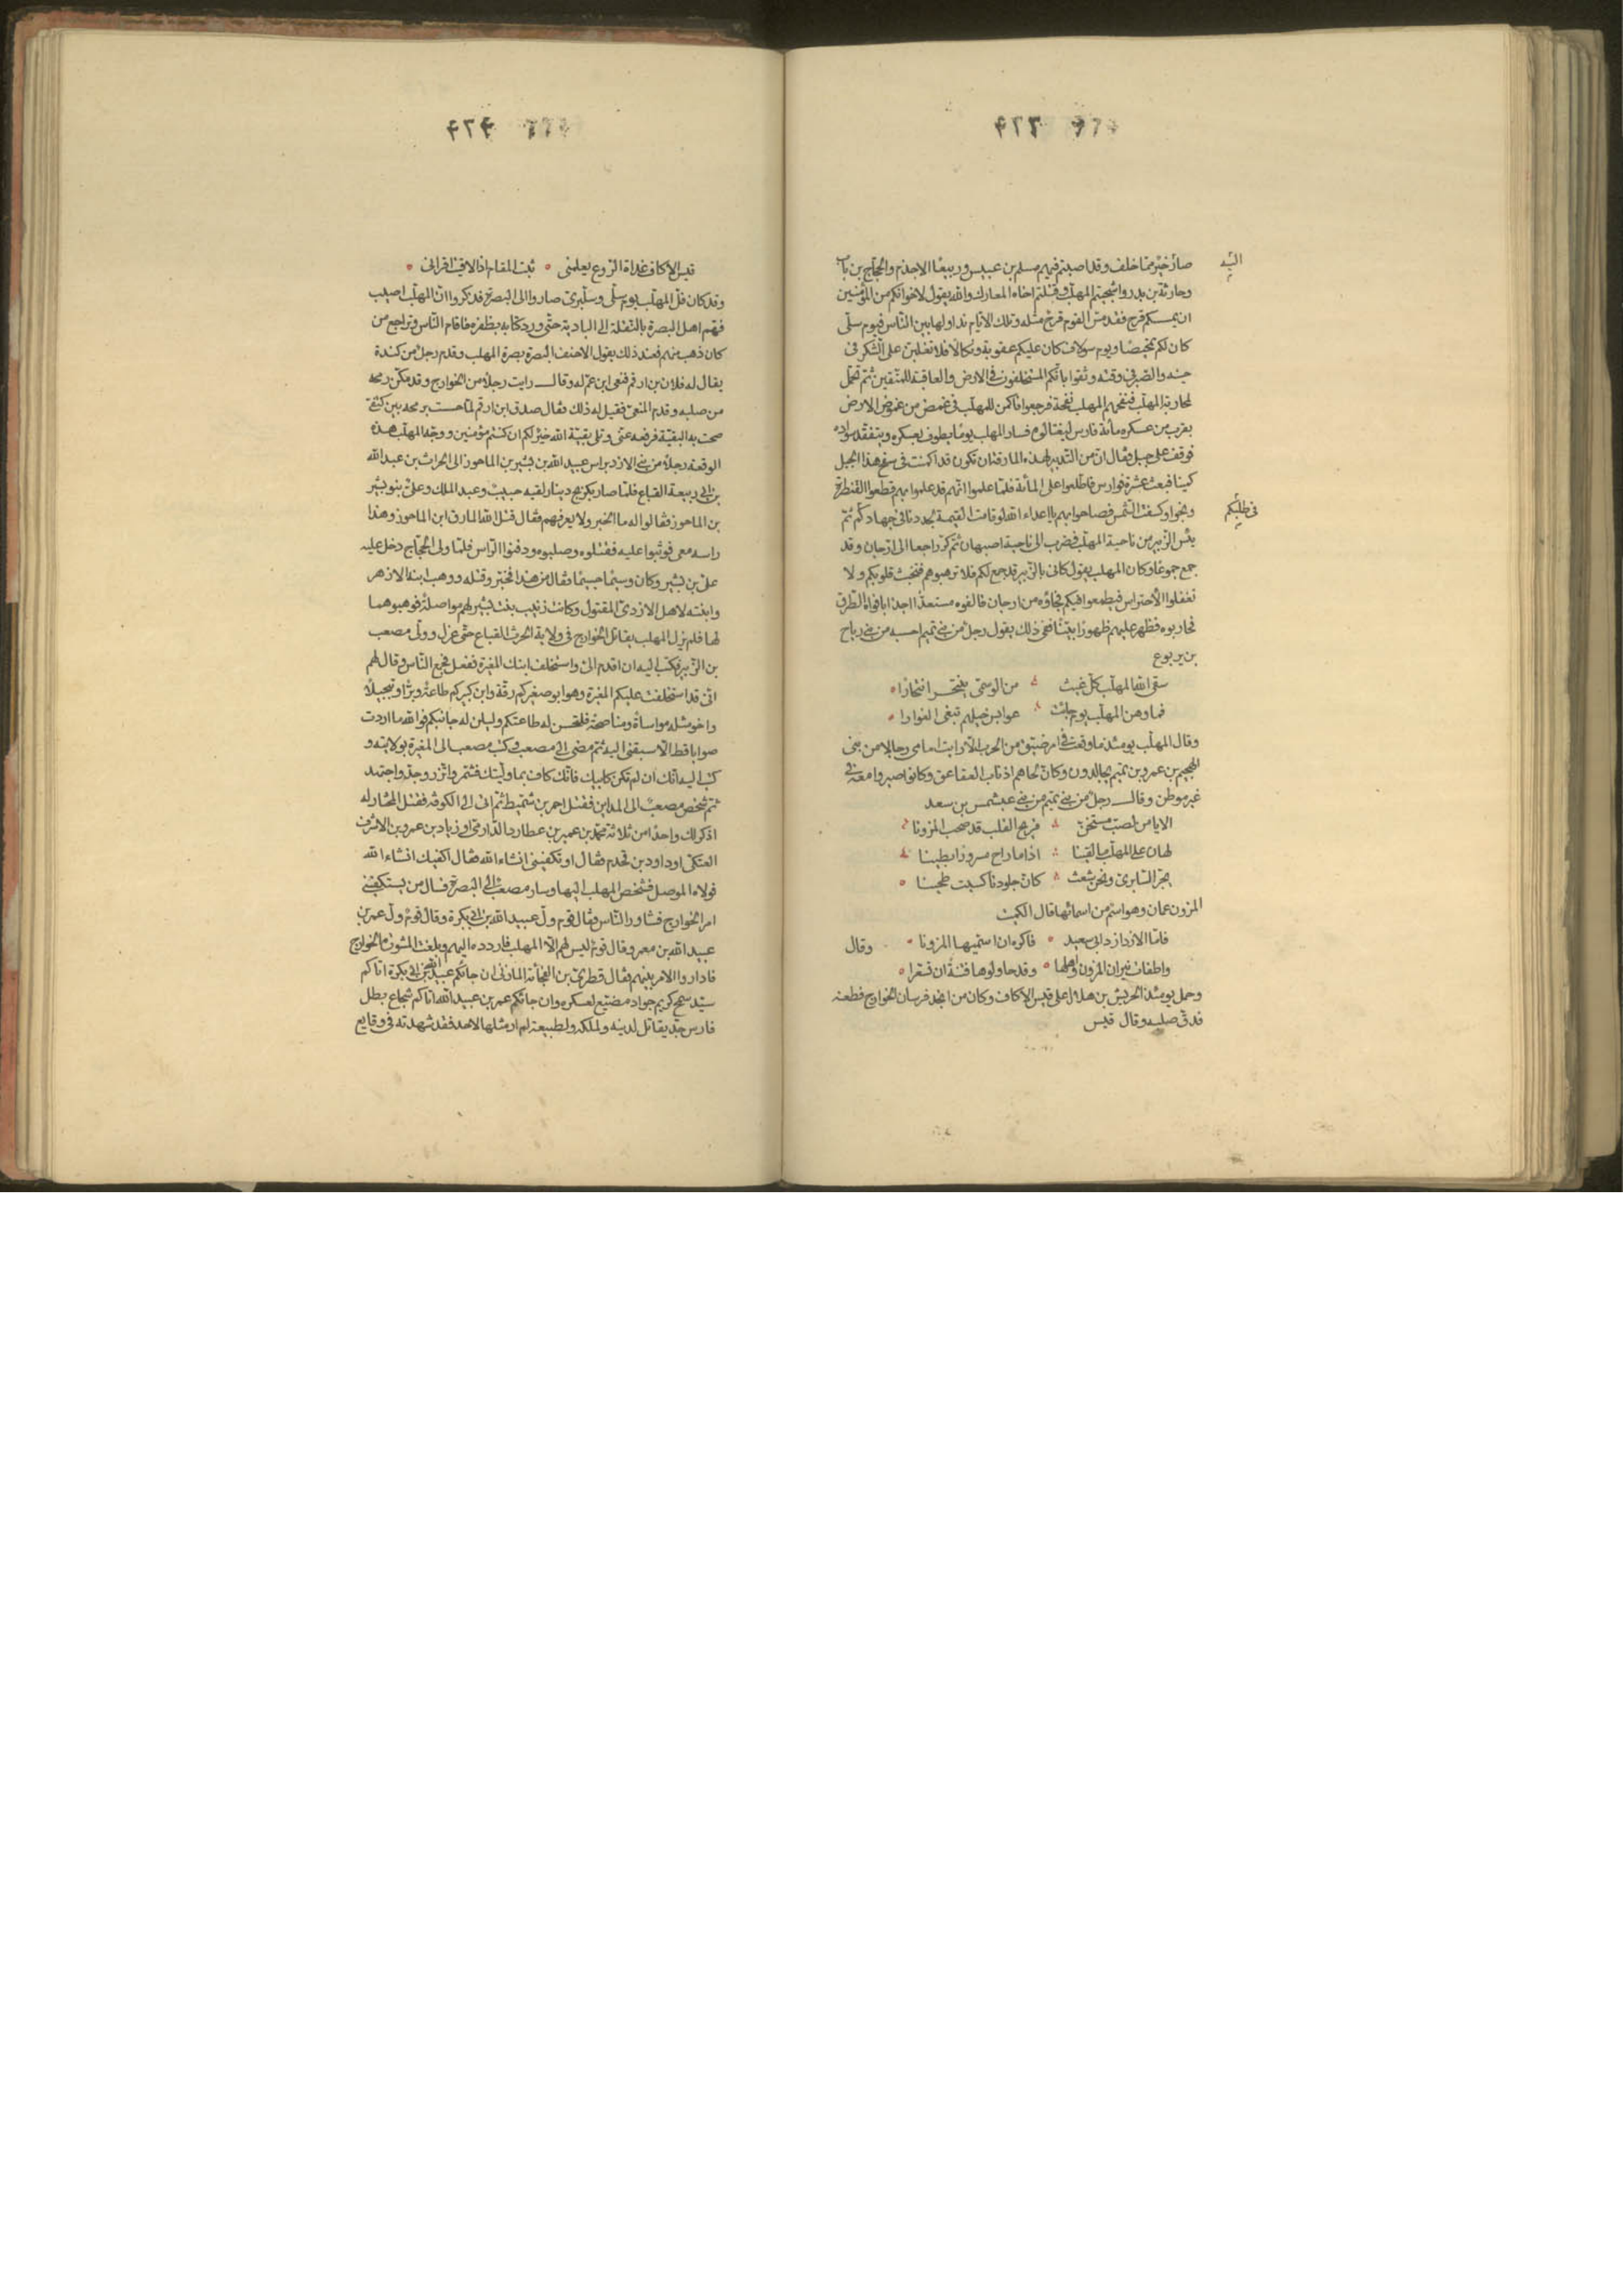 ٤٢٣
اليه
صار خير مما خلف وقد اصبتم فيهم مسلم بن عبيس وربيعا الاجذم والحجاج بن باب
وحارثة بن بدر واشجيتم المهلب وقتلتم اخاه المعارك والله يقول لاخوانكم من المؤمنين
ان يمسسكم قرح فقد مس القوم قرح مثله وتلك الايام نداولها بين الناس فيوم سلى
كان لكم تمحيصا ويوم سولاف كان عليكم عقوبة ونكالا فلا تغلبن على الشكر فى
حينه والصبر فى وقته وثقوا بانكم المستخلفون فى الارض والعاقبة للمتقين ثم تحمل
لمحاربة المهلب فنفحهم المهلب نفحة فرجعوا فاكمن للمهلب فى غمض من غموض الارض
بقرب من عسكره مائة فارس ليغتالوه فسار المهلب يوما يطوف بعسكره ويتفقد سواده
فوقف على جبل فقال ان من التدبير لهذه المارقة ان تكون قد اكمنت فى سفح هذا الجبل
كمينا فبعث عشرة فوارس فاطلعوا على المائة فلما علموا انهم قد علموا بهم قطعوا القنطرة
فى طلبكم
ونجوا وكسفت الشمس فصاحوا بهم يا اعداء الله لو قامت القيمة لجددنا فى جهادكم ثم
يئس الزبير من ناحية المهلب فضرب الى ناحية اصبهان ثم كر راجعا الى ارجان وقد
جمع جموعا وكان المهلب يقول كانى بالزبير قد جمع لكم فلا ترهبوهم فتخبث قلوبكم ولا
تغفلوا الاحتراس فيطمعوا فيكم فجاؤه من ارجان فالفوه مستعدا اخذا بافواه الطرق
فحاربوه فظهر عليهم ظهورا بينا ففى ذلك يقول رجل من بنى تميم احسبه من بنى رياح
بن يربوع
سقى الله المهلب كل غيث من الوسمى ينتحر انتحارا
فما وهن المهلب يوم جائت عوابس خيلهم تبغى الغوارا
وقال المهلب يومئذ ما وقعت فى امر ضيق من الحرب الا رايت امامى رجالا من بنى
الهجيم بن عمرو بن تميم يجالدون وكان لحاهم اذناب العقاعق وكانوا صبروا معه فى
غير موطن وقال رجل من بنى تميم من بنى عبشمس بن سعد
الا يا من لصب مستحن قريح القلب قد صحب المزونا
لهان على المهلب ما لقينا اذا ما راح مسرورا بطينا
يجر السابرى ونحن شعث كان جلودنا كسيت طحينا
المزون عمان وهو اسم من اسمائها قال الكميت
فاما الازد ازد ابى سعيد فاكره ان اسميها المزونا وقال
واطفات نيران المزون واهلها وقد حاولوها فتنة ان تسعرا
وحمل يومئذ الحريش بن هلال على قيس الاكاف وكان من انجد فرسان الخوارج فطعنه
فدق صلبه وقال قيس
٤٢٤
قيس الاكاف غداة الروع يعلمنى ثبت المقام اذا لاقيت اقرانى
وقد كان فل المهلب يوم سلى وسلبرى صاروا الى البصرة فذكروا ان المهلب اصيب
فهم اهل البصرة بالنقلة الى البادية حتى ورد كتابه بظفره فاقام الناس وتراجع من
كان ذهب منهم فعند ذلك يقول الاحنف البصرة بصرة المهلب وقدم رجل من كندة
يقال له فلان بن ارقم فنعى ابن عم له وقال رايت رجلا من الخوارج وقد مكن رمحه
من صلبه وقدم المنعى فقيل له ذلك فقال صدق ابن ارقم لما حسست برمحه بين كتفى
صحت به البقية فرفعه عنى وتلى بقية الله خير لكم ان كنتم مؤمنين ووجه المهلب هذه
الوقعة رجلا من بنى الازد براس عبيد الله بن بشير بن الماحوز الى الحراث بن عبد الله
بن ابى ربيعة القباع فلما صار بكربج دينار لقيه حبيب وعبد الملك وعلى بنو بشير
بن الماحوز فقالوا له ما الخبر ولا يعرفهم فقال قتل الله المارق ابن الماحوز وهذا
راسه معى فوثبوا عليه فقتلوه وصلبوه ودفنوا الراس فلما ولى الحجاج دخل عليه
على بن بشير وكان وسيما جسيما فقال من هذا فخبر وقتله ووهب ابنه الازهر
وابنته لاهل الازدى المقتول وكانت زينب بنت بشير لهم مواصلة فوهبوهما
لها فلم يزل المهلب يقاتل الخوارج فى ولاية الحرث القباع حتى عزل وولى مصعب
بن الزبير فكتب اليه ان اقدم الى واستخلف ابنك المغيرة ففعل فجمع الناس وقال لهم
انى قد استخلفت عليكم المغيرة وهو ابو صغيركم رقة وابن كبيركم طاعة وبرا وتبجيلا
واخو مثله مواساة ومناصحة فلتحسن له طاعتكم وليلن له جانبكم فوالله ما اردت
صوابا قط الا سبقنى اليه ثم مضى الى مصعب وكتب مصعب الى المغيرة بولايته و
كتب اليه انك ان لم تكن كابيك فانك كاف بما وليتك فشمر واتزر وجد واجتهد
ثم شخص مصعب الى المداين فقتل احمر بن شميط ثم اتى الى الكوفة فقتل المختار له
اذكر لك واحدا من ثلاثة محمد بن عمير بن عطارد الدارمى او زياد بن عمرو بن الاشرف
العتكى او داود بن قحذم فقال او تكفينى انشاء الله فقال اكفيك انشاء الله
فولاه الموصل فشخص المهلب اليها وسار مصعب الى البصرة فسال من يستكفينى
امر الخوارج فشاور الناس فقال قوم ول عبيد الله بن ابى بكرة وقال قوم ول عمر بن
عبيد الله بن معمر وقال قوم ليس لهم الا المهلب فاردده اليهم وبلغت المشورة الخوارج
فاداروا الامر بينهم فقال قطرى بن الفجأة المازنى ان جائكم عبيد الله بن ابى بكرة اتاكم
سيد سمح كريم جواد مضيع لعسكره وان جائكم عمر بن عبيد الله اتاكم شجاع بطل
فارس جد يقاتل لدينه ولملكه ولطبيعة لم ار مثلها لاحد فقد شهدته فى وقايع